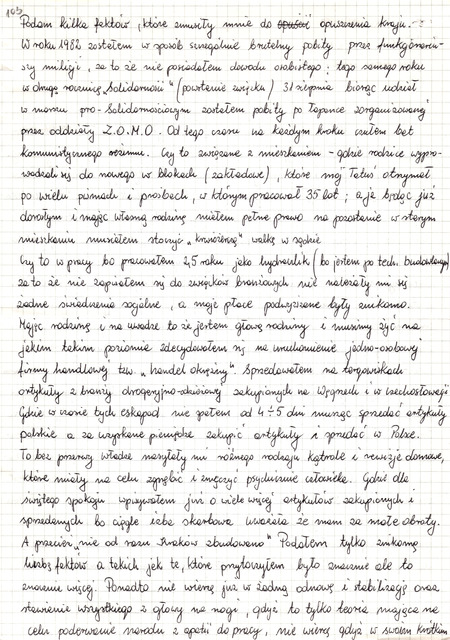 103
Podam kilka faktów, które zmusiły mnie do opuścić opuszczenia kraju.
W roku 1982 zostałem w sposób szczególnie brutalny pobity przez funkcjonariu-
szy milicji, za to że nie posiadałem dowodu osobistego; tego samego roku
w drugą rocznicę "Solidarności" (powstanie związku) 31 sierpnia biorąc udział
w marszu pro-Solidarnościowym zostałem pobity po łapance zorganizowanej
przez oddziały Z.O.M.O. Od tego czasu na każdym kroku czułem bat
komunistycznego reżimu. Czy to związane z mieszkaniem - gdzie rodzice wypro-
wadzali się do nowego w blokach (zakładowe), które mój Tatuś otrzymał
po wielu pismach i prośbach, w którym pracował 35 lat; a ja będąc już
dorosłym i mając własną rodzinę miałem pełne prawo na pozostanie w starym
mieszkaniu musiałem stoczyć "krwiożerczą" walkę w sądzie
Czy to w pracy bo pracowałem 2,5 roku jako hydraulik (bo jestem po tech. budowlanym)
za to że nie zapisałem się do związków branżowych nie należały mi się
żadne świadczenia socjalne, a moje płace podwyższane były znikomo.
Mając rodzinę i na uwadze to że jestem głową rodziny i musimy żyć na
jakim takim poziomie zdecydowałem się na uruchomienie jedno-osobowej
firmy handlowej tzw. "handel okrężny" Sprzedawałem na targowiskach
artykuły z branży drogeryjno-odzieżowej zakupionych na Węgrzech i w Czechosłowacji
Gdzie w czasie tych eskapad nie spałem od 4÷5 dni musząc sprzedać artykuły
polskie a za uzyskane pieniądze zakupić artykuły i sprzedać w Polsce.
To bez przerwy władze nasyłały mi różnego rodzaju kontrole i rewizje domowe,
które miały na celu zgnębić i zniszczyć psychicznie człowieka. Gdzie dla
świętego spokoju wpisywałem już o wiele więcej artykułów zakupionych i
sprzedanych bo ciągle izba skarbowa uważała że mam za małe obroty.
A przecież "nie od razu Kraków zbudowano" Podałem tylko znikomą
liczbę faktów a takich jak te, które przytoczyłem było znacznie ale to
znacznie więcej. Ponadto nie wierzę już w żadną odnowę i stabilizację oraz
stawianie wszystkiego z głowy na nogi, gdyż to tylko teoria mająca na
celu poderwanie narodu z apatii do pracy, nie wierzę gdyż w swoim krótkim